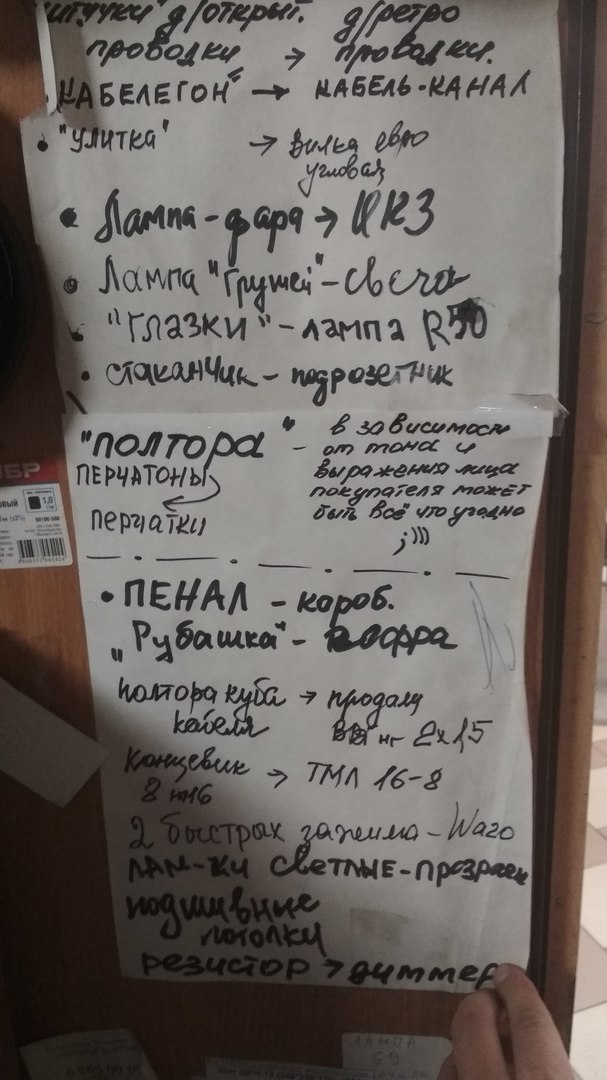 д/открыт. д/ретро
проводки → проводки.
"КАБЕЛЕГОН" → КАБЕЛЬ-КАНАЛ
• "УЛИТКА" → вилка евро
угловая
• Лампа-фара → ИКЗ
• Лампа "Грушей" - свеча
"ГЛАЗКИ" - ЛАМПА R50
• СТАКАНЧИК - подрозетник
"ПОЛТОРА" - в зависимости
от тона и
выражения лица
покупателя может
быть всё что угодно
;)))
ПЕРЧАТОНЫ
перчатки
• ПЕНАЛ - короб.
„Рубашка" - гофра
полтора куба → продаму
кабеля ВВГнг 2х1,5
концевик → ТМЛ 16-8
8 на16
2 быстрых зажима - Wago
ЛАМ-КИ СВЕТЛЫЕ - прозрачн
подшивные
потолки
резистор → диммер
БР
ОВЫЙ
1,0
5 665.00
ЛАМПА
G9